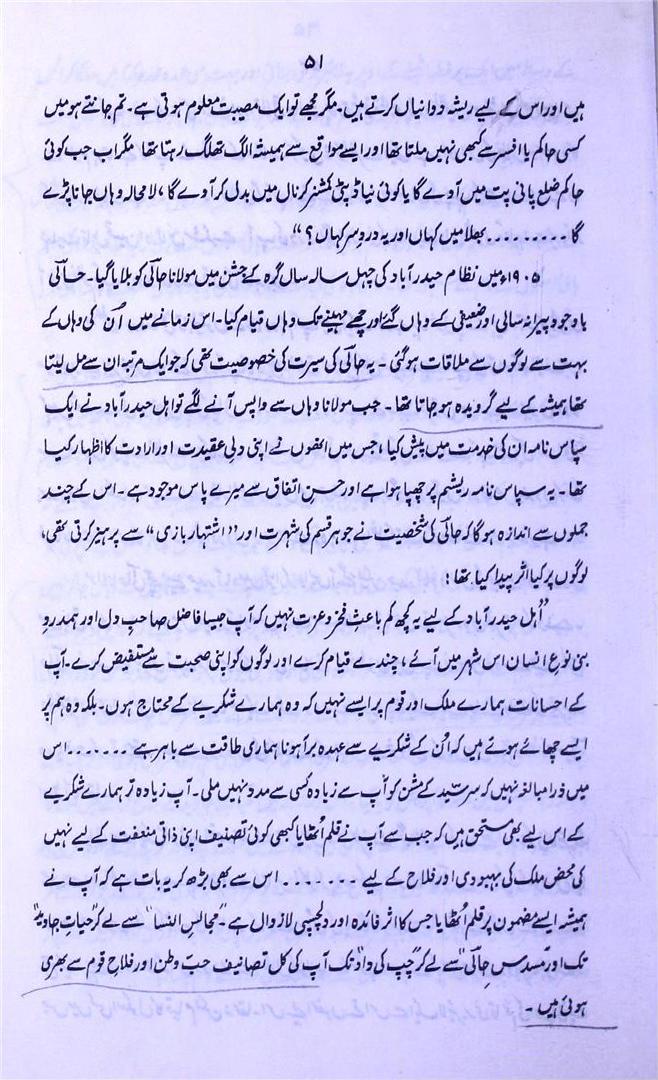 ۵۱
ہیں اور اس کے لیے ریشہ دوانیاں کرتے ہیں۔ مگر مجھے تو ایک مصیبت معلوم ہوتی ہے۔ تم جانتے ہو میں
کسی حاکم یا افسر سے کبھی نہیں ملتا تھا اور ایسے مواقع سے ہمیشہ الگ تھلگ رہتا تھا مگر اب جب کوئی
حاکم ضلع پانی پت میں آوے گا یا کوئی نیا ڈپٹی کمشنر کرنال میں بدل کر آوے گا، لامحالہ وہاں جانا پڑے
گا ........ بھلا میں کہاں اور یہ دردِ سر کہاں؟"
۱۹۰۵ء میں نظام حیدرآباد کی چہل سالہ سال گرہ کے جشن میں مولانا حالی کو بلایا گیا۔ حالی
باوجود پیرانہ سالی اور ضعیفی کے وہاں گئے اور چھے مہینے تک وہاں قیام کیا۔ اس زمانے میں اُن کی وہاں کے
بہت سے لوگوں سے ملاقات ہوگئی۔ یہ حالی کی سیرت کی خصوصیت تھی کہ جو ایک مرتبہ ان سے مل لیتا
تھا ہمیشہ کے لیے گرویدہ ہو جاتا تھا۔ جب مولانا وہاں سے واپس آنے لگے تو اہل حیدرآباد نے ایک
سپاس نامہ ان کی خدمت میں پیش کیا، جس میں انھوں نے اپنی دلی عقیدت اور ارادت کا اظہار کیا
تھا۔ یہ سپاس نامہ ریشم پر چھپا ہوا ہے اور حسن اتفاق سے میرے پاس موجود ہے۔ اس کے چند
جملوں سے اندازہ ہوگا کہ حالی کی شخصیت نے جو ہر قسم کی شہرت اور "اشتہار بازی" سے پرہیز کرتی تھی،
لوگوں پر کیا اثر پیدا کیا تھا:
"اہل حیدرآباد کے لیے یہ کچھ کم باعثِ فخر و عزت نہیں کہ آپ جیسا فاضل صاحبِ دل اور ہمدردِ
بنی نوع انسان اس شہر میں آئے، چندے قیام کرے اور لوگوں کو اپنی صحبت سے مستفیض کرے۔ آپ
کے احسانات ہمارے ملک اور قوم پر ایسے نہیں کہ وہ ہمارے شکریے کے محتاج ہوں۔ بلکہ وہ ہم پر
ایسے چھائے ہوئے ہیں کہ اُن کے شکریے سے عہدہ برآ ہونا ہماری طاقت سے باہر ہے ....... اس
میں ذرا مبالغہ نہیں کہ سرسید کے مشن کو آپ سے زیادہ کسی سے مدد نہیں ملی۔ آپ زیادہ تر ہمارے شکریے
کے اس لیے بھی مستحق ہیں کہ جب سے آپ نے قلم اُٹھایا کبھی کوئی تصنیف اپنی ذاتی منفعت کے لیے نہیں
کی محض ملک کی بہبودی اور فلاح کے لیے ....... اس سے بھی بڑھ کر یہ بات ہے کہ آپ نے
ہمیشہ ایسے مضمون پر قلم اُٹھایا جس کا اثر فائدہ اور دلچسپی لازوال ہے۔ "مجالس النسا" سے لے کر "حیاتِ جاوید"
تک اور "مسدس حالی" سے لے کر "چپ کی داد" تک آپ کی کل تصانیف حب وطن اور فلاح قوم سے بھری
ہوئی ہیں۔